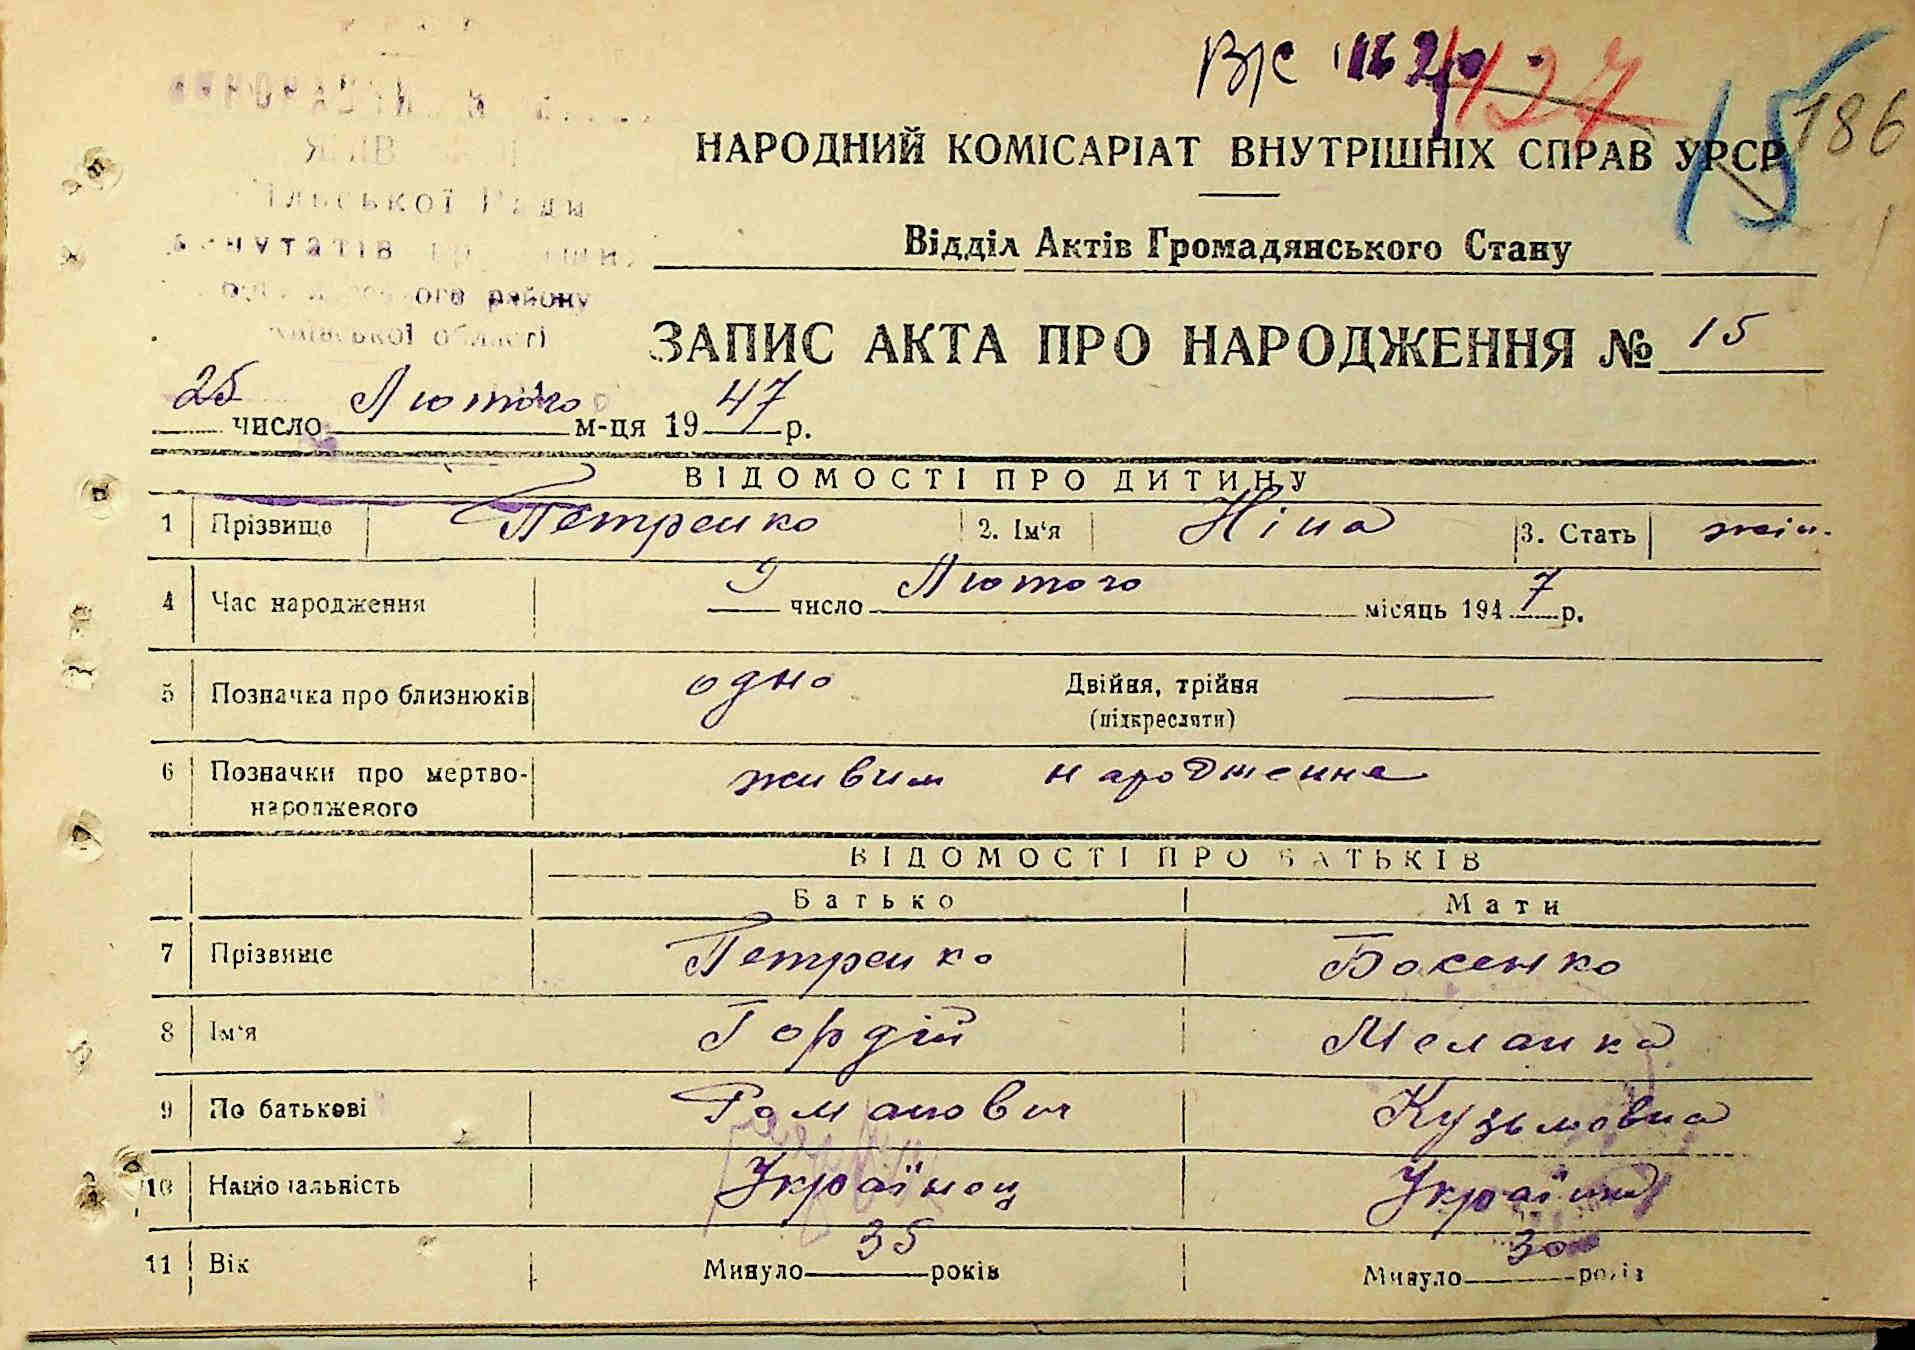 ВІС 1162 127 15 186
НАРОДНИЙ КОМІСАРІАТ ВНУТРІШНІХ СПРАВ УРСР
Відділ Актів Громадянського Стану
району
ЗАПИС АКТА ПРО НАРОДЖЕННЯ № 15
25 число Лютого м-ця 1947 р.
ВІДОМОСТІ ПРО ДИТИНУ
1 Прізвище Петренко 2. Ім'я Ніна 3. Стать жін.
4 Час народження 9 число Лютого місяць 1947 р.
5 Позначка про близнюків одно Двійня, трійня
(підкреслити)
6 Позначки про мертво- живим народження
народженого
ВІДОМОСТІ ПРО БАТЬКІВ
Батько Мати
7 Прізвище Петренко Босенко
8 Ім'я Гордій Меланка
9 По батькові Романович Кузьмовна
10 Національність Українец Українка
11 Вік Минуло 35 років Минуло 30 років